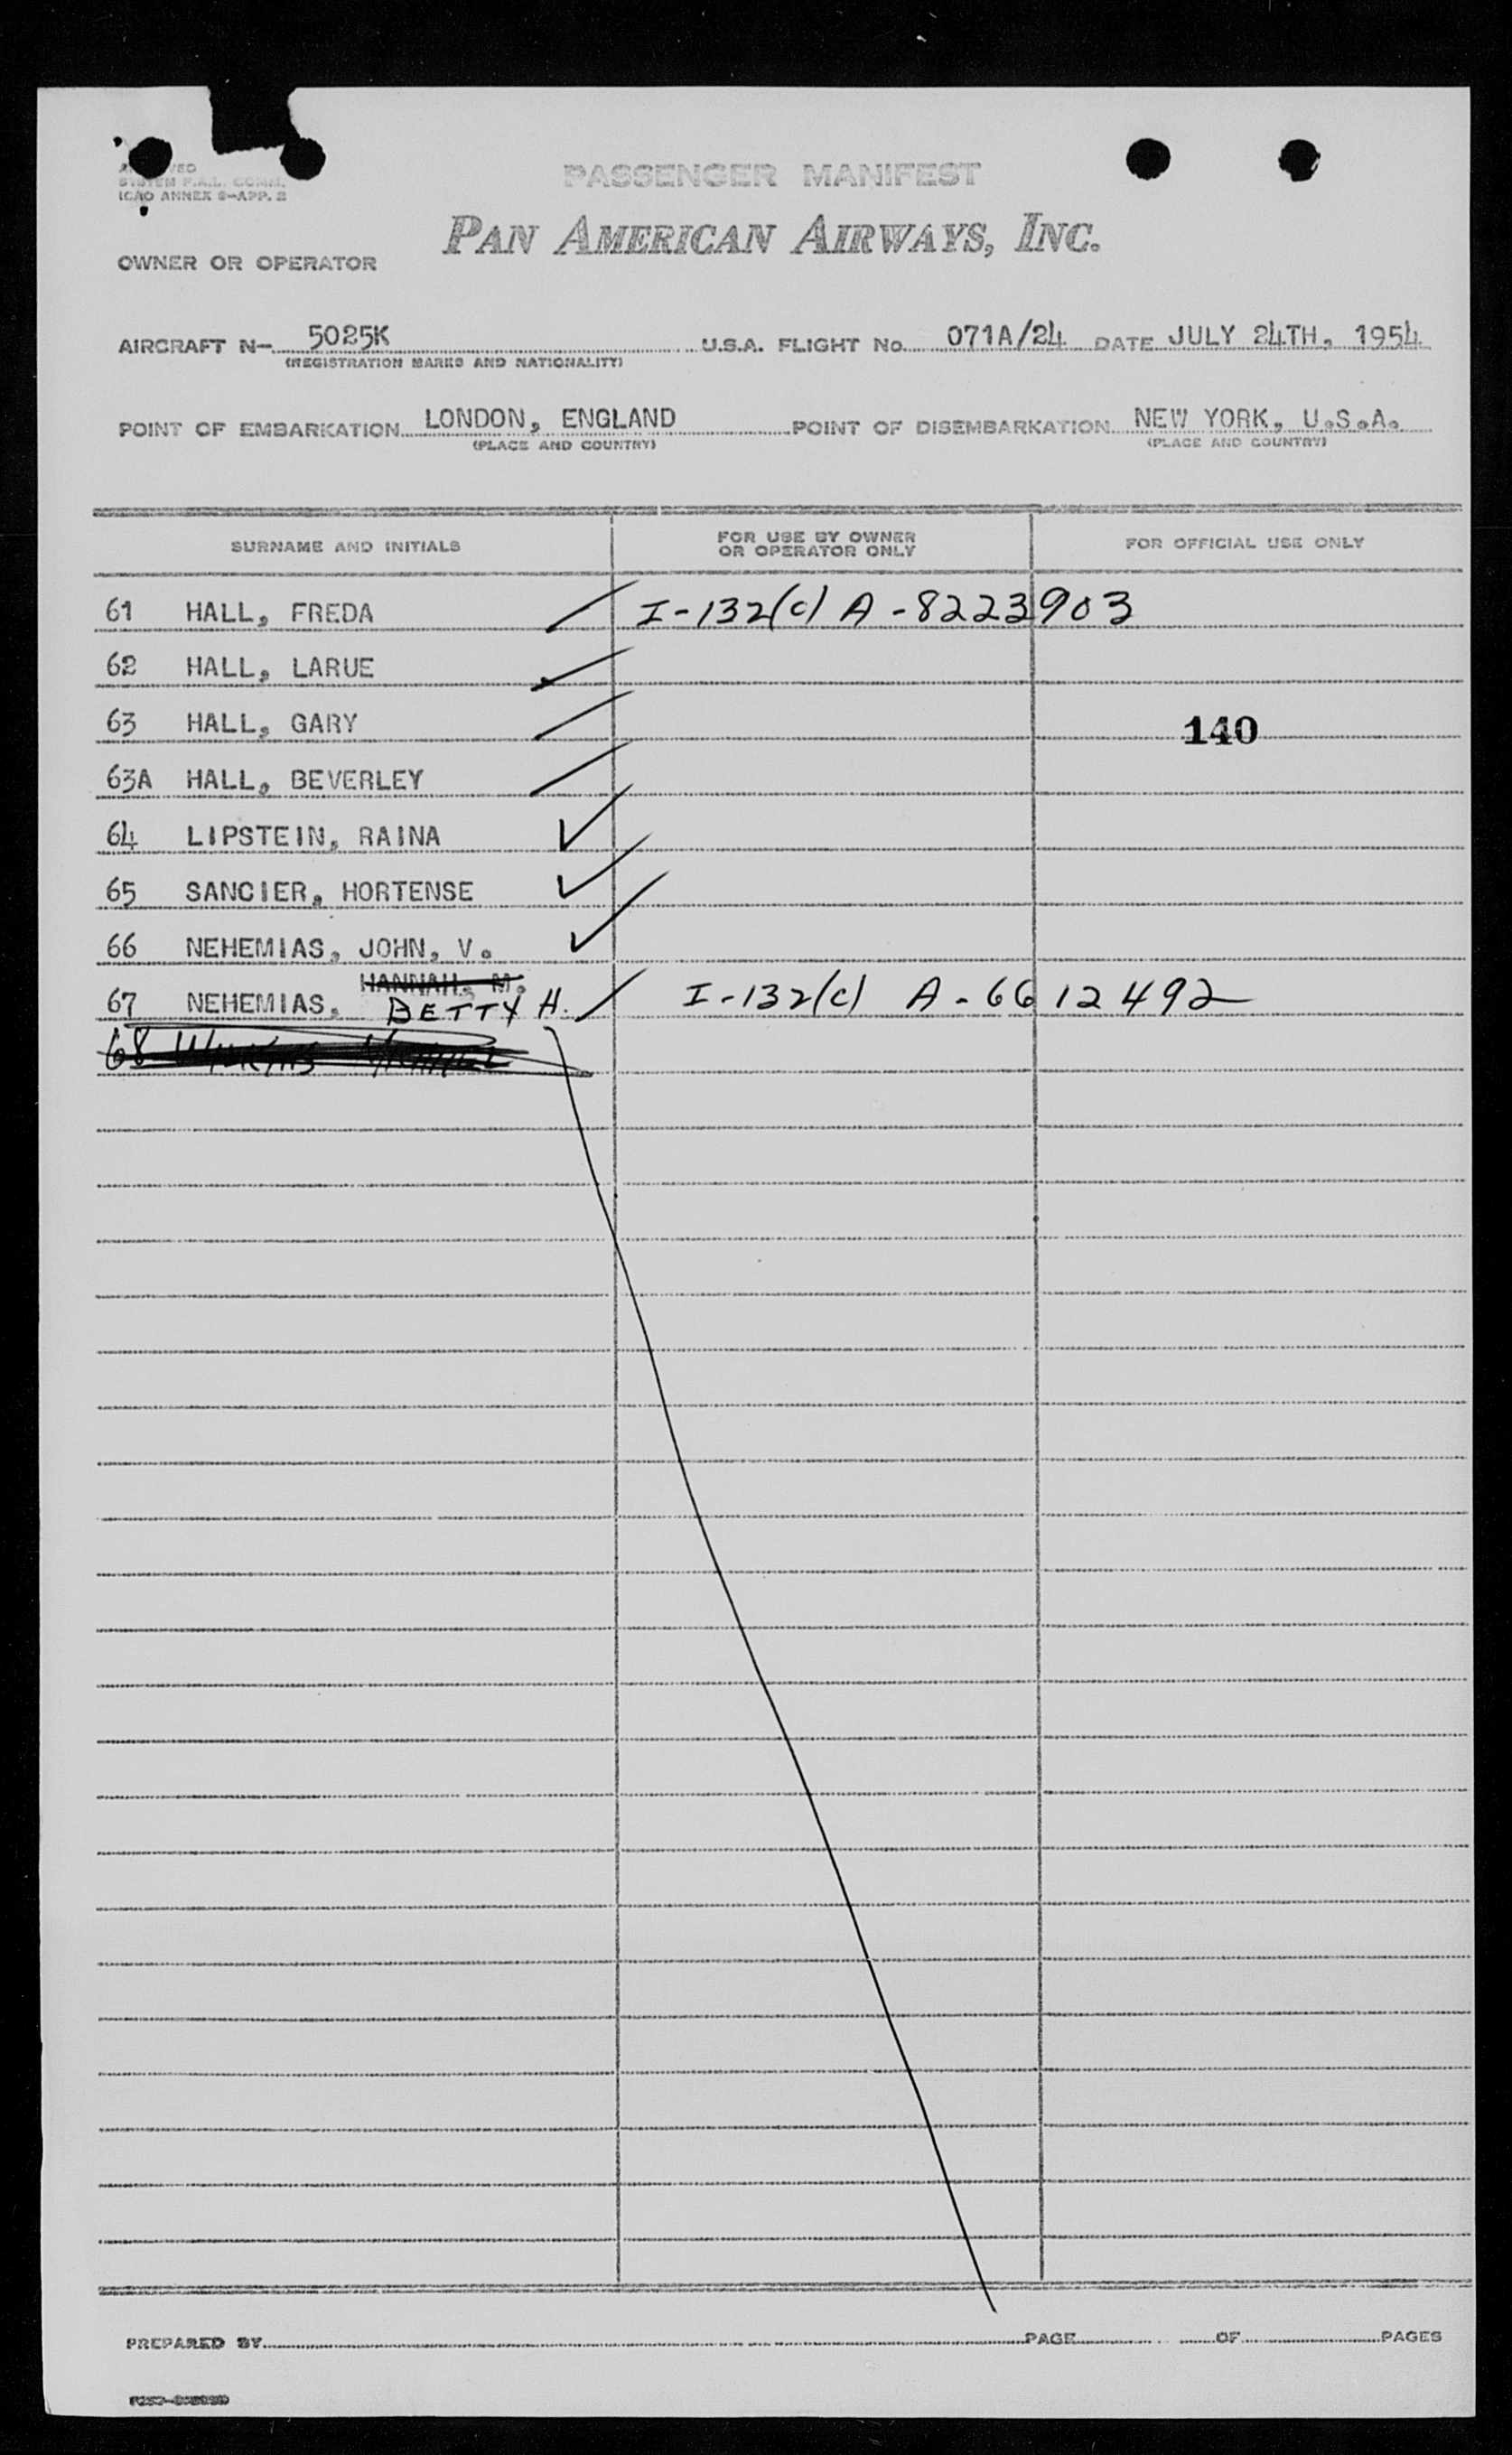 SYSTEM F.A.L. COMM.
ICAO ANNEX 9-APP. 2
PASSENGER MANIFEST
PAN AMERICAN AIRWAYS, INC.
OWNER OR OPERATOR
AIRCRAFT N- 5025K U.S.A. FLIGHT No. 071A/24 DATE JULY 24TH, 1954
(REGISTRATION MARKS AND NATIONALITY)
POINT OF EMBARKATION LONDON, ENGLAND POINT OF DISEMBARKATION NEW YORK, U.S.A.
(PLACE AND COUNTRY) (PLACE AND COUNTRY)
SURNAME AND INITIALS FOR USE BY OWNER OR OPERATOR ONLY FOR OFFICIAL USE ONLY
61 HALL, FREDA I-132(c) A-8223903
62 HALL, LARUE
63 HALL, GARY 140
63A HALL, BEVERLEY
64 LIPSTEIN, RAINA
65 SANCIER, HORTENSE
66 NEHEMIAS, JOHN, V.
HANNAH, M.
67 NEHEMIAS, BETTY H. I-132(c) A-6612492
68
PREPARED BY PAGE OF PAGES